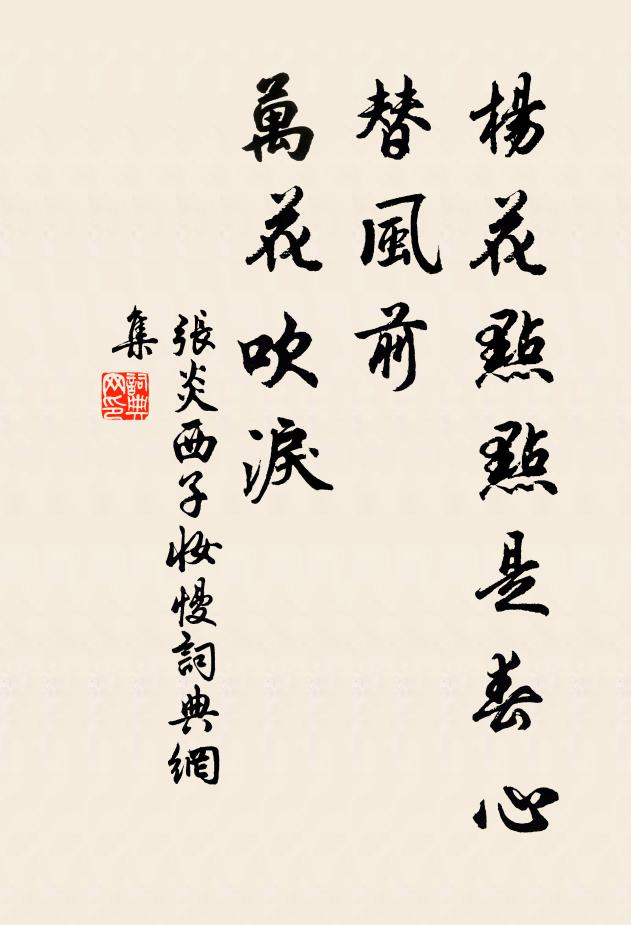 楊花點點是春心
替風前
萬花吹淚
張炎西子妝慢詞典網
集
詞典網印